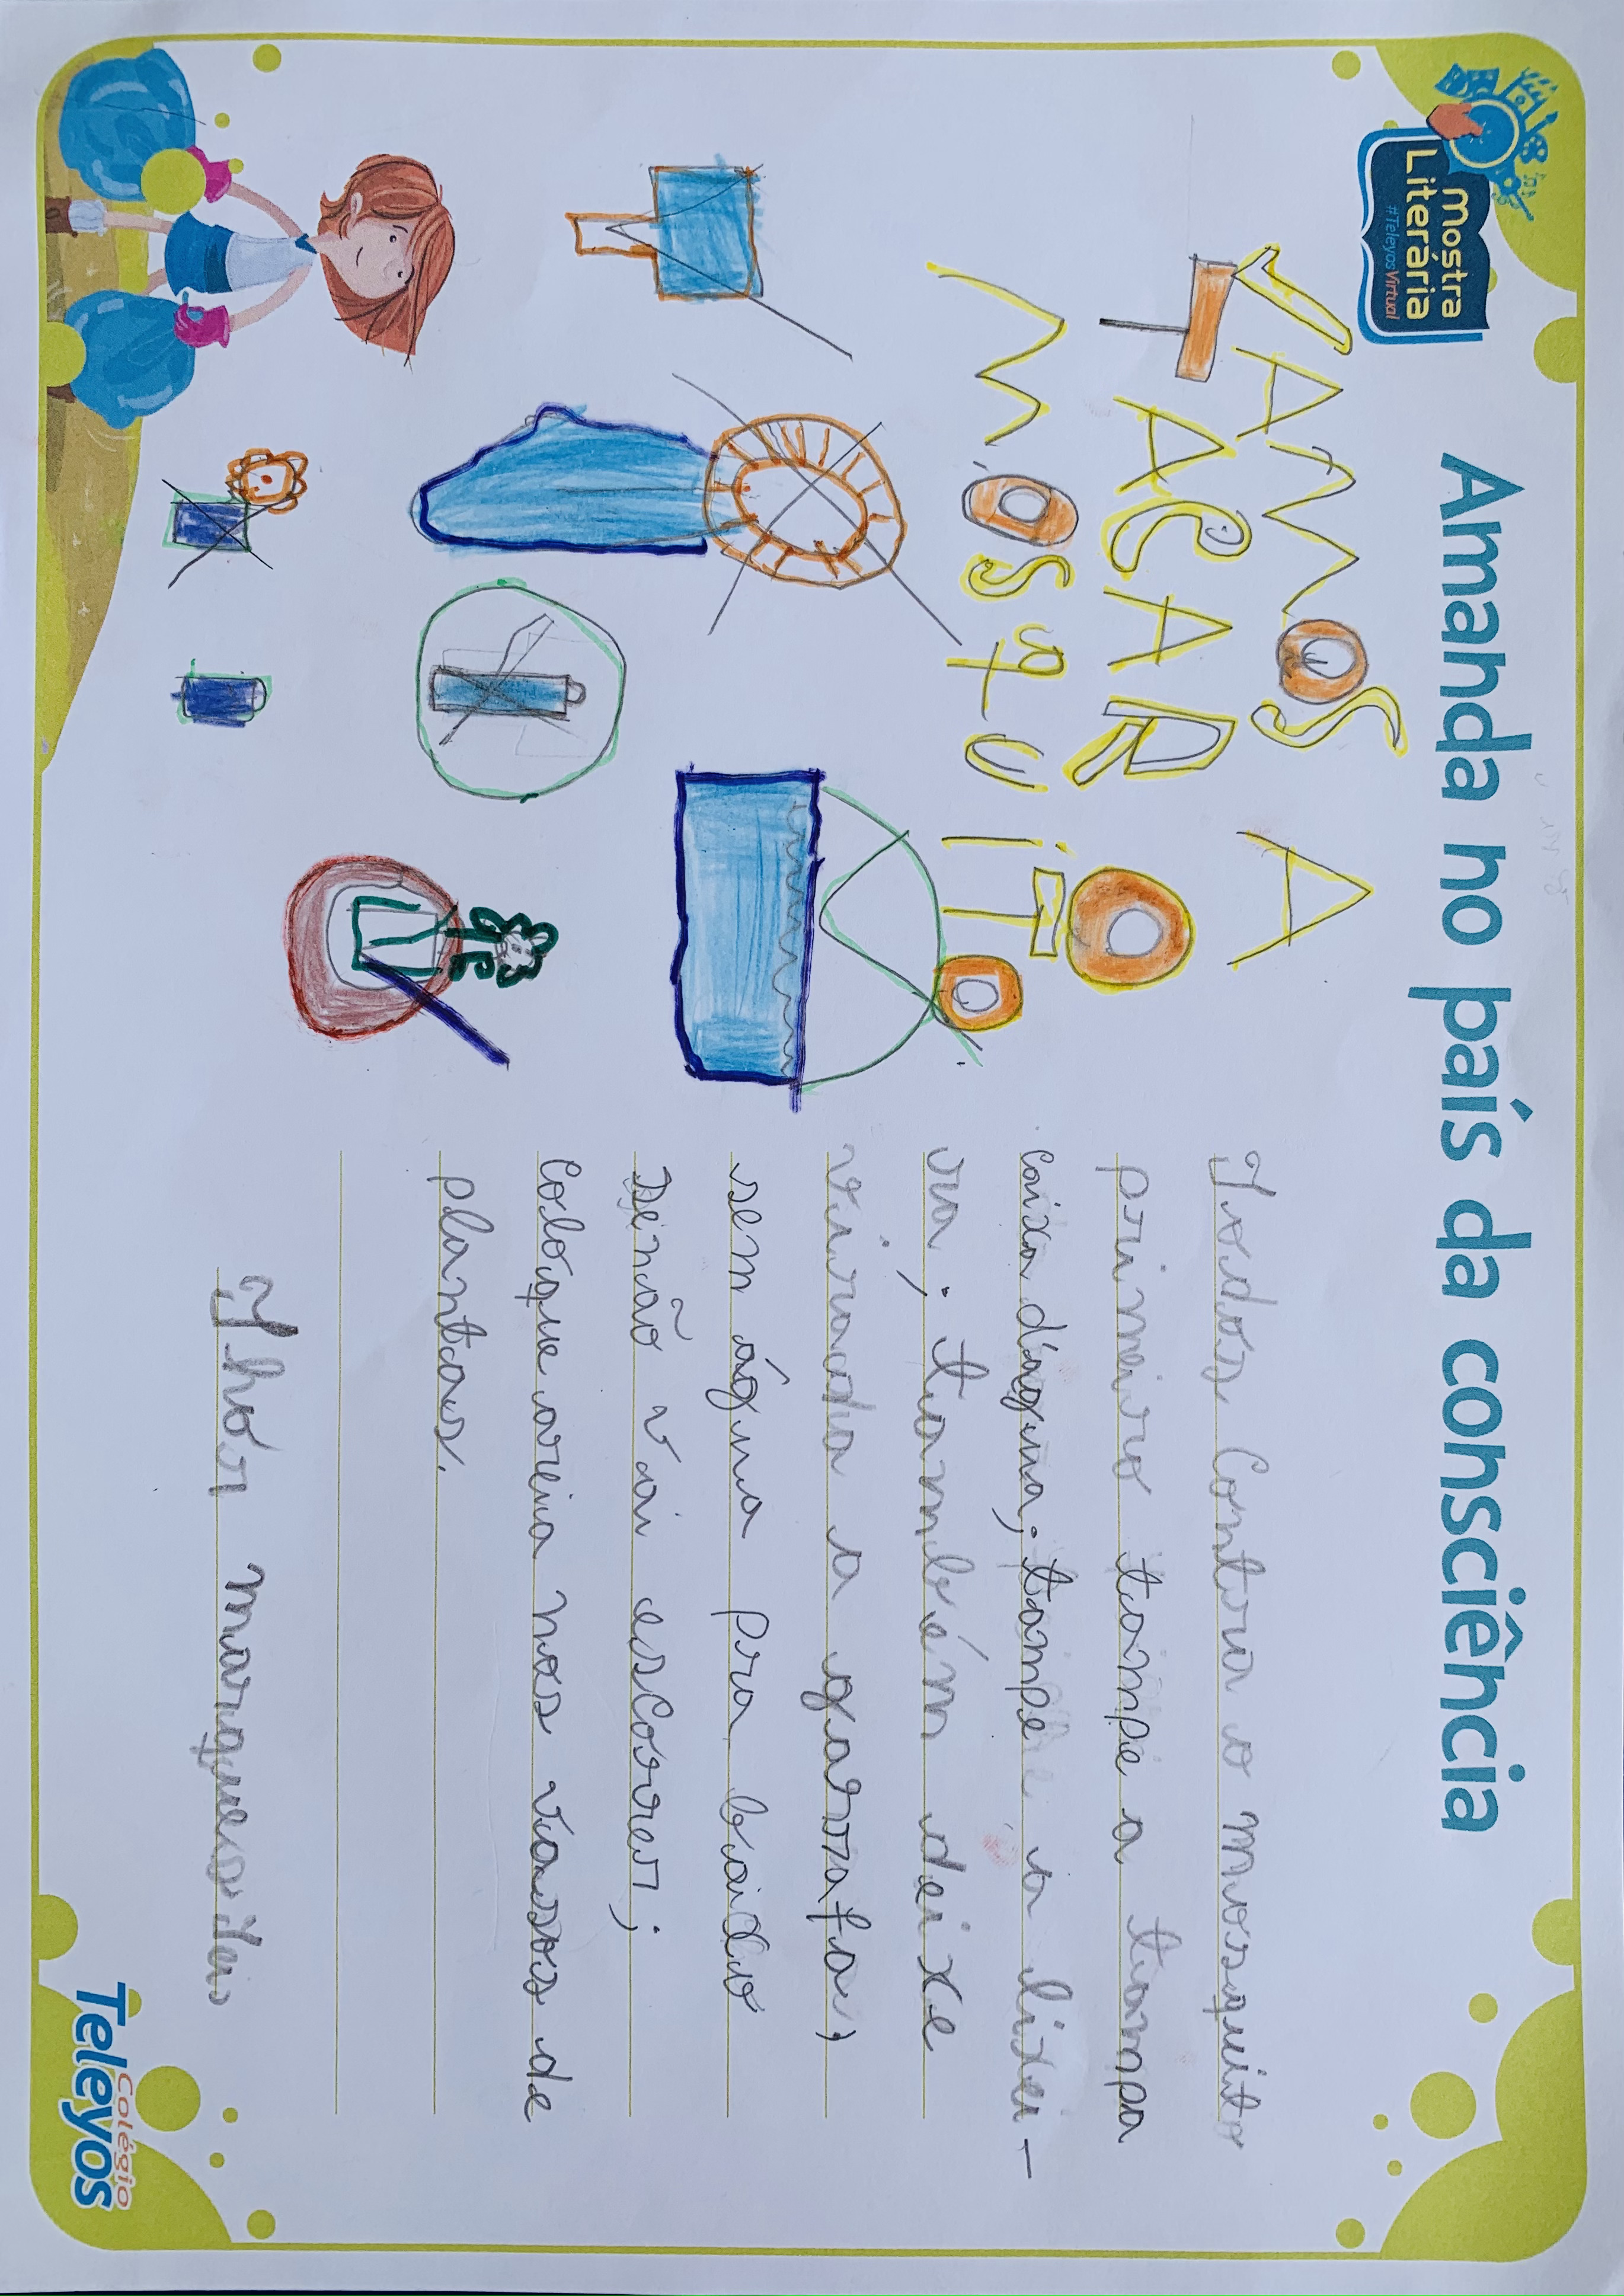 mostra
Literária
#TeleyosVirtual
Amanda no país da consciência
VAMOS A
TACAR O
MOSQUITO
Todos Contra o mosquito
primeiro tampe a tampa
caixa dágua; tampe a lixei-
ra; também deixe
virada a garrafa;
sem água pra baixo
Senão vai escorrer;
coloque areia nos vasos de
plantas.
Yhór
Colégio
Teleyos